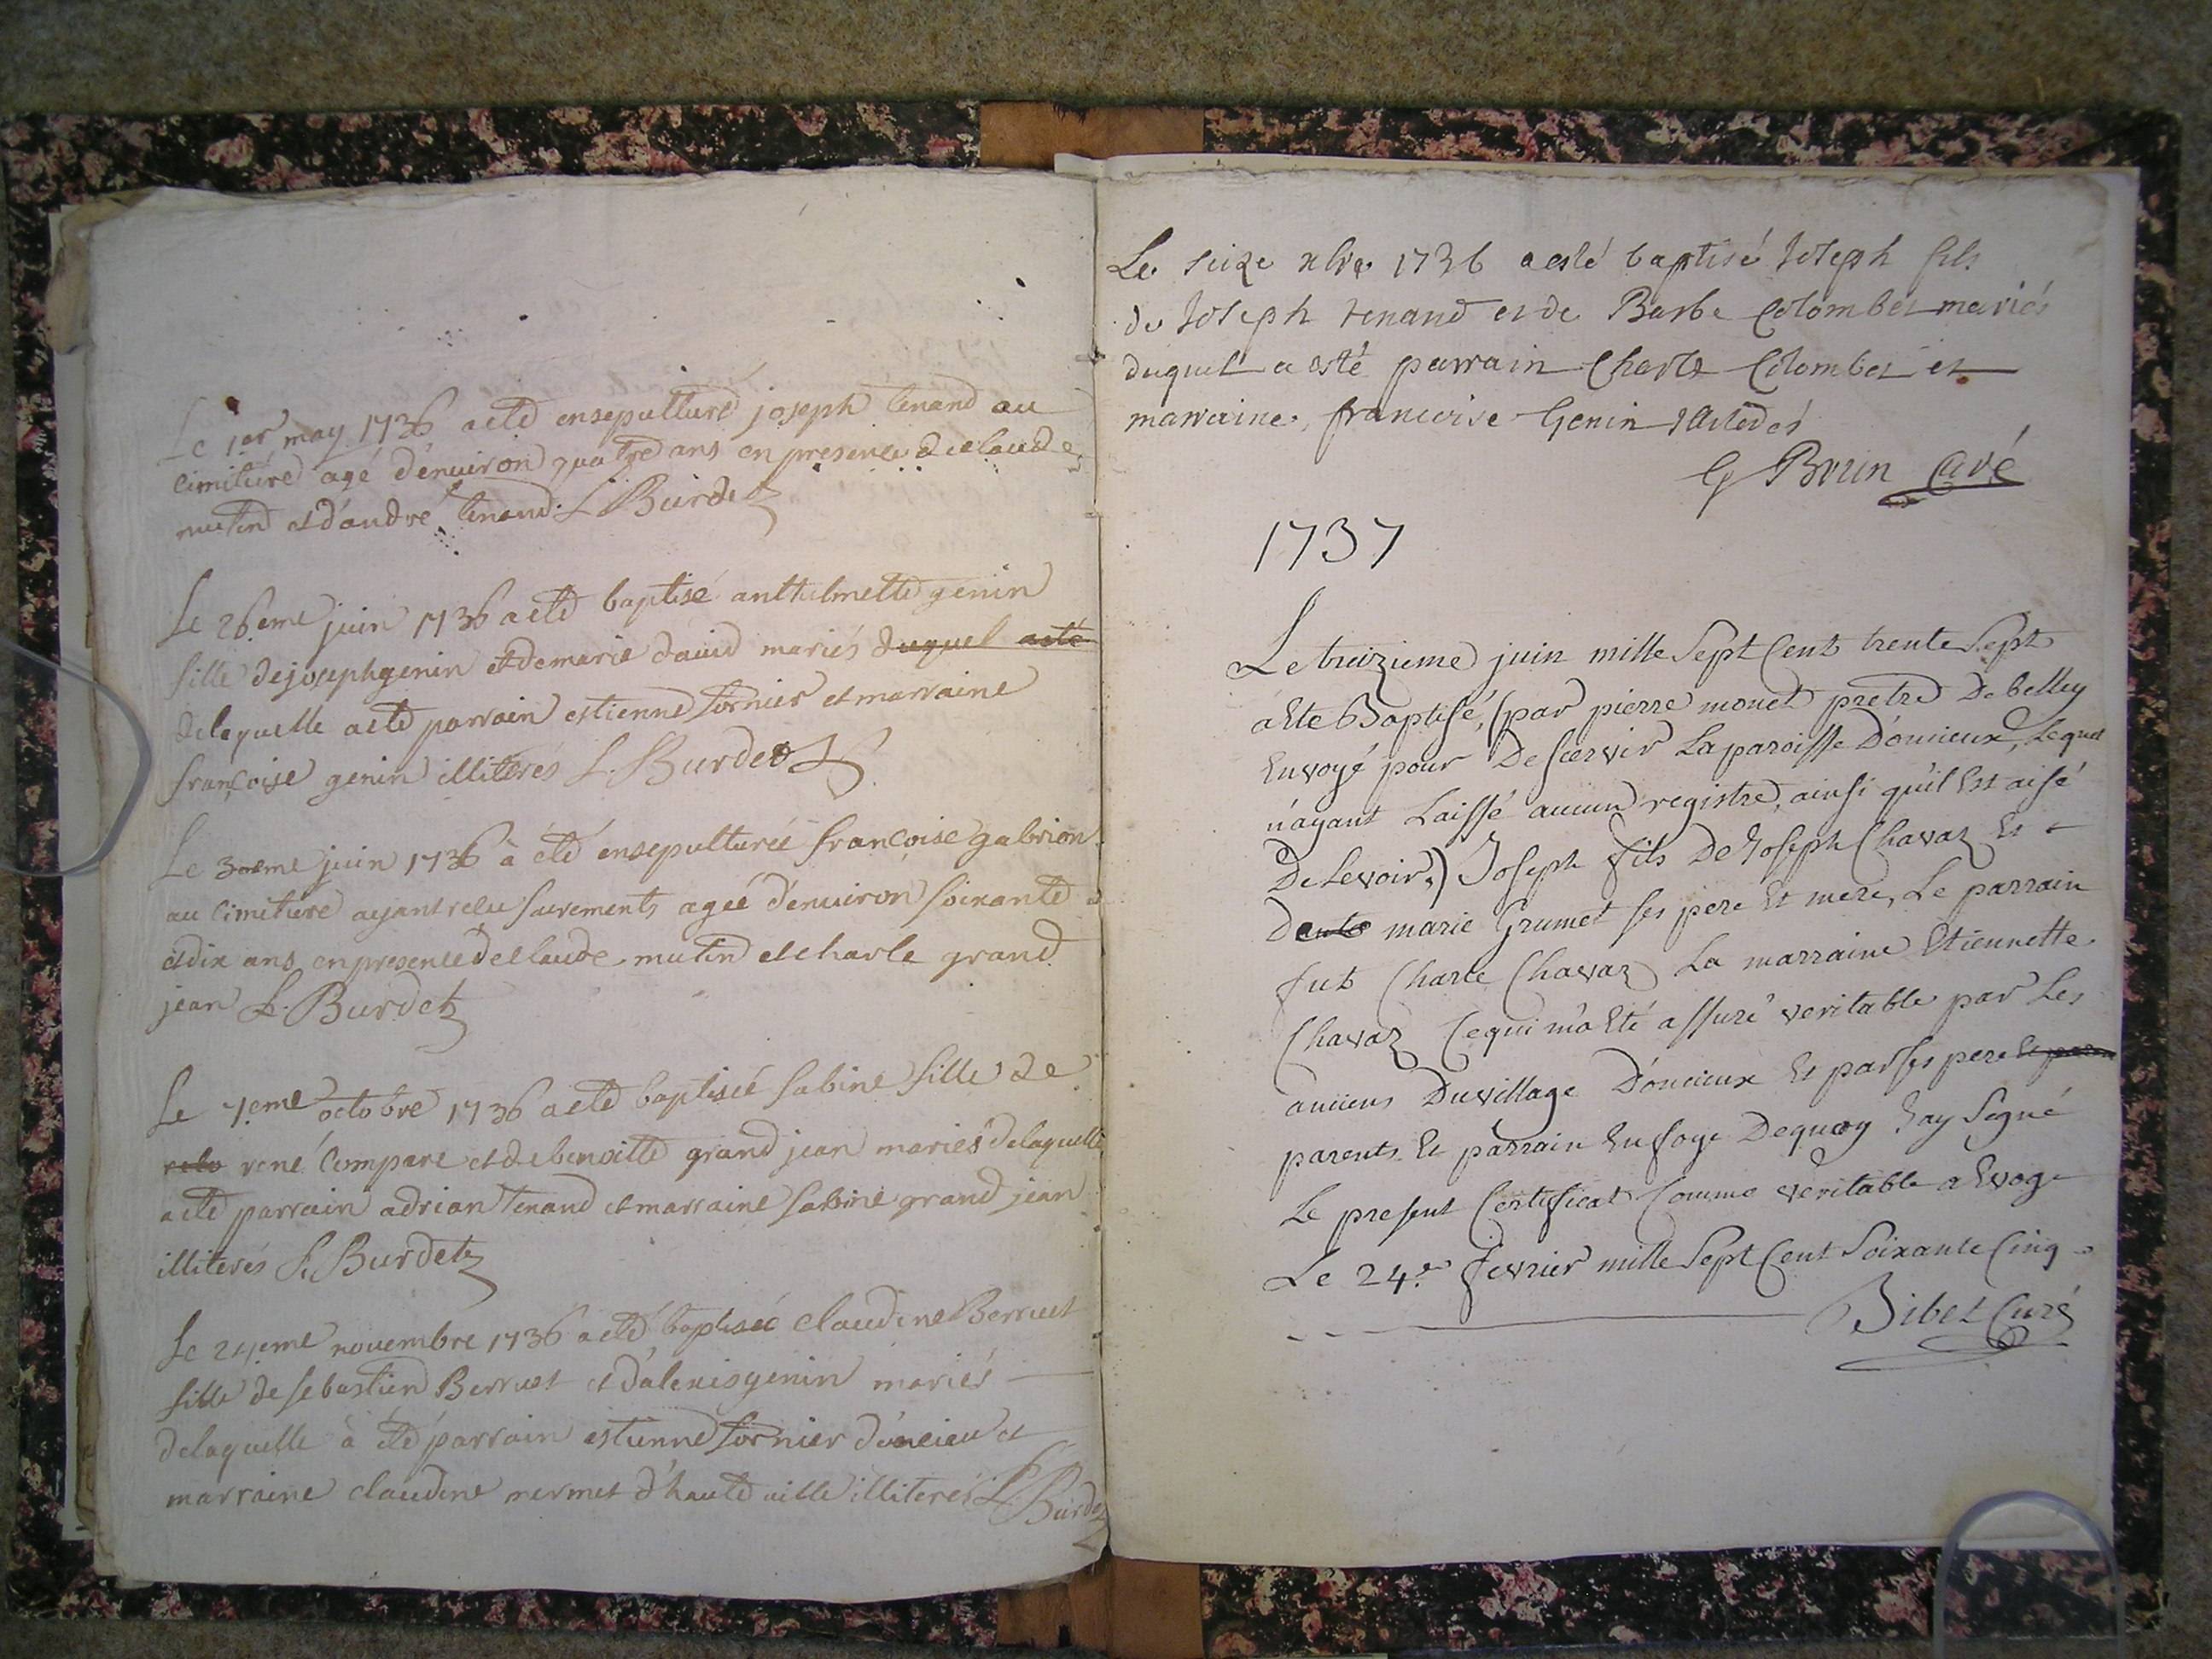 Le 1er may 1736 a eté ensepulturé joseph tenand au
cimitiere agé d'enuiron quatre ans en presence de claude
mutin et d'andré tenand. L Burdet
Le 26eme juin 1736 a eté baptisé anthelmette genin
fille de joseph genin et de marie dauid mariés duquel a eté
de laquelle a eté parrain estienne fornier et marraine
françoise genin illiterés L. Burdet
Le 30eme juin 1736 à été ensepulturée francoise gabrion
au cimitiere ayant reçu sacrements ageé d'enuiron soixante
et dix ans en presence de claude mutin et charle grand
jean L. Burdet
Le 7eme octobre 1736 a eté baptiseé sabine fille de
rené compare et de benoitte grand jean mariés de laquelle
a eté parrain adrian tenand et marraine sabine grand jean
illiterés L. Burdet
Le 24eme novembre 1736 a eté baptiseé claudine Berruet
fille de sebastien Berruet et d'alexis genin mariés
de laquelle à été parrain estienne fornier d'oncieu et
marraine claudine mermet d'haute uille illiterés L. Burdet
Le seize xbre 1736 a esté baptisé Joseph fils
de Joseph tenand et de Barbe Colombet mariés
duquel a esté parrain Charle Colombet et
marraine francoise Genin illiterés
G Brun Curé
1737
Le treizieme juin mille Sept Cent trente Sept
a Eté Baptisé, (par pierre monet pretre De belley
Envoyé pour Desservir La paroisse D'oncieux, Lequel
n'ayant Laissé aucun registre, ainsi qu'il Est aisé
De Le voir,) Joseph fils De Joseph Chavaz Et
De marie Grumet ses pere Et mere, Le parrain
fut Charle Chavaz La marraine Etiennette
Chavaz Ce qui m'a Eté assuré veritable par Les
anciens Du village D'oncieux Et par ses pere
parents Et parrain En foye De quoy J'ay Signé
Le present Certificat Comme veritable a Evoge
Le 24e fevrier mille Sept Cent Soixante Cinq
Bibet Curé